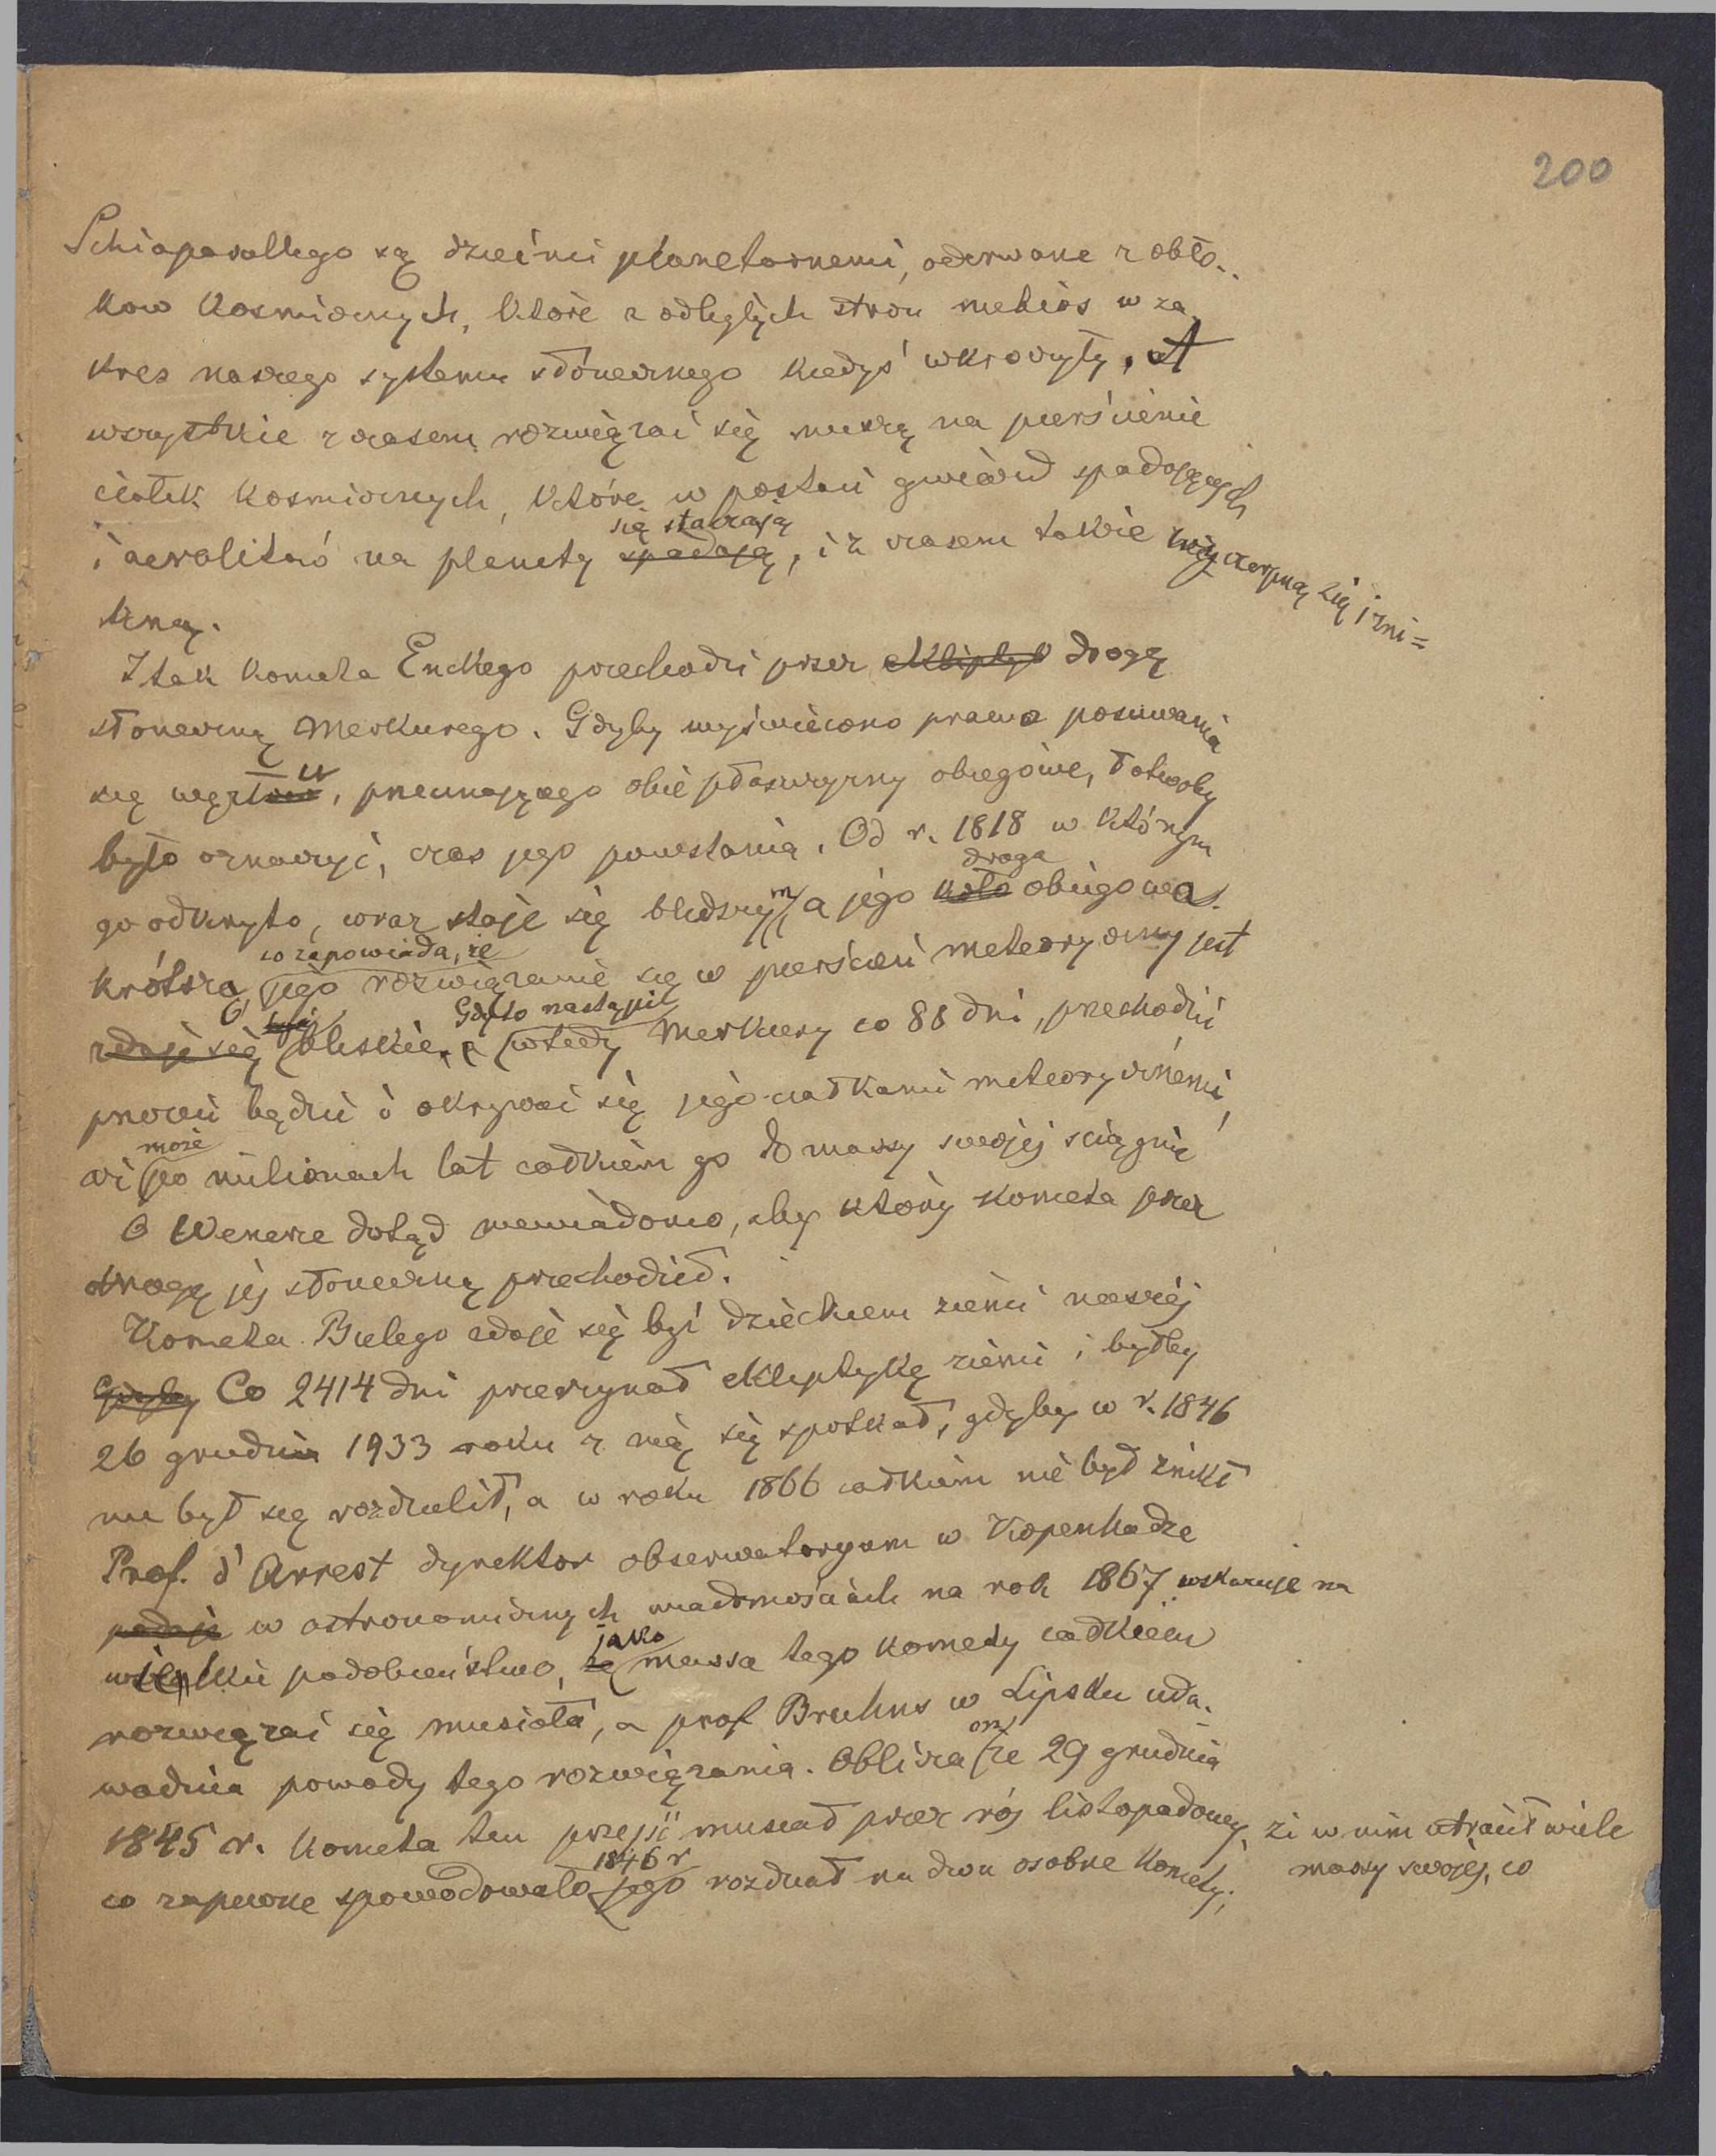 200
Schiaparellego są dziećmi planetarnemi, oderwane z obło-
kow kosmicznych, które z odległych stron niebios w za
kres naszego systemu słonecznego kiedyś wkroczyły, at
wszystkie z czasem rozwięzać się muszą na pierścienie
ciałek kosmicznych, które w postaci gwiazd spadających
się staczają
i aerolitów na planety spadają, i z czasem takie wyczerpną się i zni=
kną.
I tak kometa Enckego przechodzi przez ekliptyk drogę
słoneczną Merkurego. Gdyby wyświecono prawa posuwania
się węzłów, przecinającego obie płaszczyzny obiegowe, łatwoby
było oznaczyć, czas jego powstania. Od r. 1818 w którym
droga
go odkryto, coraz staje się bledszym, a jego koło obiegowa
co zapowiada, że
krótsza, jego rozwięzanie się w pierścień meteoryczny jest
Gdy to nastąpi
zdaje się być bliskie, wtedy Merkury co 88 dni, przechodzić
przezeń będzie i okrywać się jego ciałkami meteorycznemi,
może
aż po milionach lat całkiem go do massy swojej ściągnie
O Wenerze dotąd niewiadomo, aby który kometa przez
drogę jej słoneczną przechodził.
Kometa Bielego zdaje się być dzieckiem ziemi naszéj
Gdyby Co 2414 dni przerzynał ekliptykę ziemi i byłby
26 grudnia 1933 roku z nią się spotkał, gdyby w r. 1846
nie był się rozdzielił, a w roku 1866 całkiem nie był znikł
Prof. d'Arrest dyrektor obserwatoryum w Kopenhadze
podaje w astronomicznych wiadomościach na rok 1867 wskazuje na
jako
wielkie podobieństwo, że massa tego komety całkiem
rozwięzać się musiała, a prof Bruhns w Lipsku uda-
on
wadnia powody tego rozwięzania. Oblicza że 29 grudnia
1845 r. kometa ten przejść musiał przez rój listopadowy, że w nim utracił wiele
massy swojéj, co
1846 r
co zapewne spowodowało jego rozdział na dwa osobne komety;